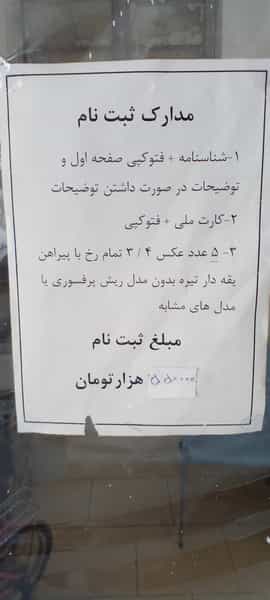 مدارک ثبت نام
۱-شناسنامه + فتوکپی صفحه اول و
توضیحات در صورت داشتن توضیحات
۲-کارت ملی + فتوکپی
۳- ۵ عدد عکس ۴ / ۳ تمام رخ با پیراهن
یقه دار تیره بدون مدل ریش پرفسوری یا
مدل های مشابه
مبلغ ثبت نام
هزارتومان